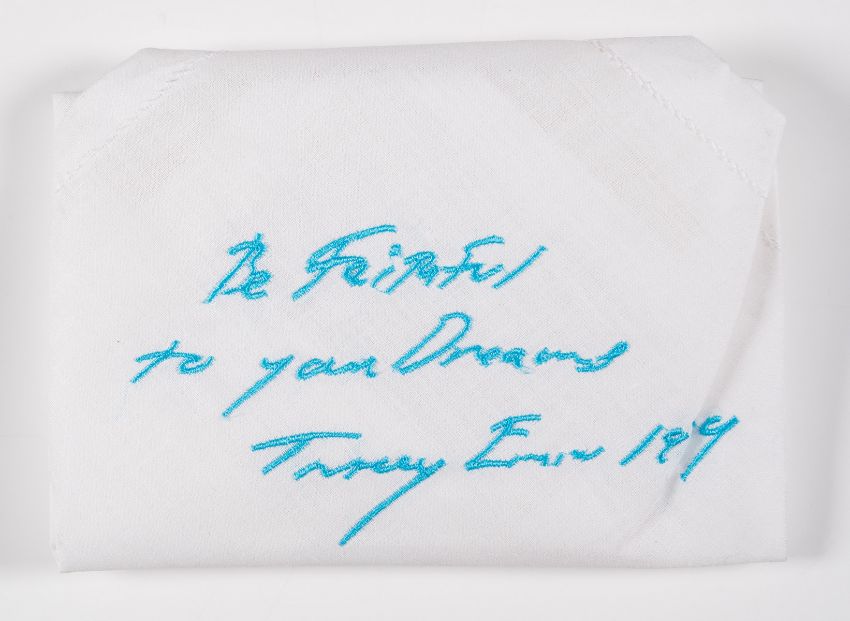 Be Faithful
to your Dreams
Tracey Emin